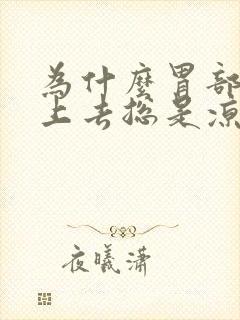 為什麼胃部
上去總是涼
夜曦瀟